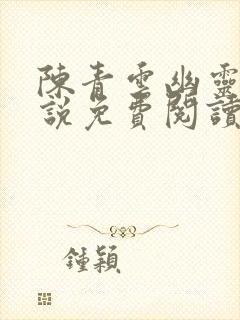 陳青雲幽靈
說免費閱讀
鍾穎